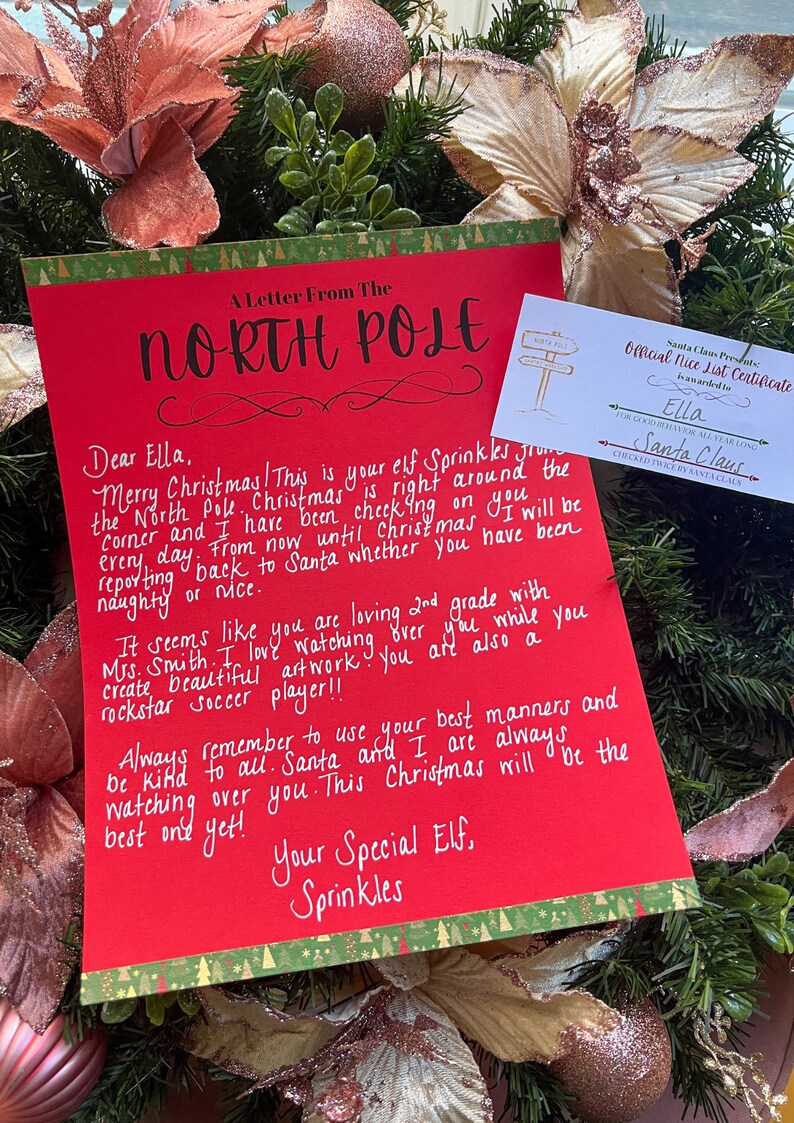 A Letter From The
NORTH POLE
Dear Ella,
Merry Christmas! This is your elf Sprinkles from
the North Pole. Christmas is right around the
corner and I have been checking on you
every day. From now until Christmas I will be
reporting back to Santa whether you have been
naughty or nice.
It seems like you are loving 2nd grade with
Mrs. Smith. I love watching over you while you
create beautiful artwork. You are also a
rockstar soccer player!!
Always remember to use your best manners and
be kind to all. Santa and I are always
watching over you. This Christmas will be the
best one yet!
Your Special Elf,
Sprinkles
NORTH POLE
SANTA'S WORKSHOP
Santa Claus Presents:
Official Nice List Certificate
is awarded to
Ella
FOR GOOD BEHAVIOR ALL YEAR LONG
Santa Claus
CHECKED TWICE BY SANTA CLAUS